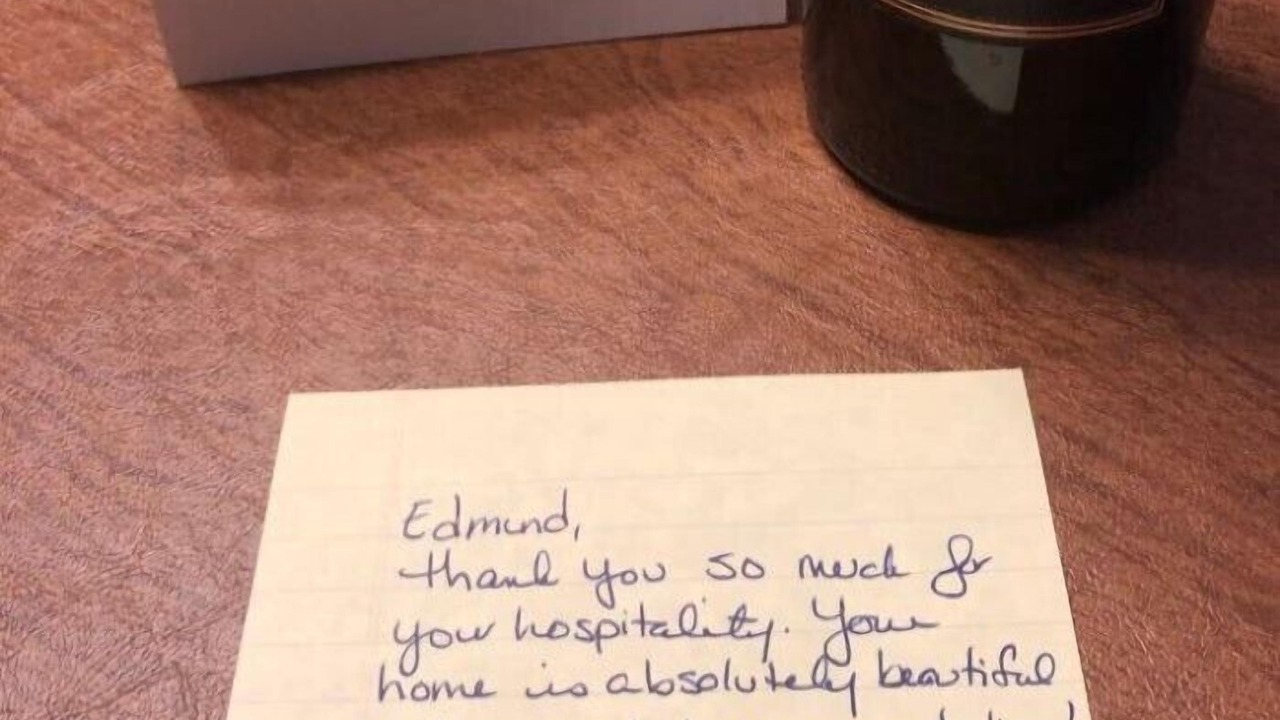 Edmund,
thank you so much for
your hospitality. Your
home is absolutely beautiful